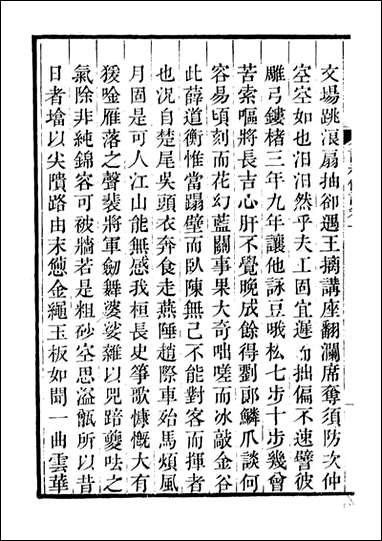 文場跳浪扇抽卻遇王摛講座翻瀾席奪須防次仲
空空如也汨汨然乎夫工固宜遲而拙偏不速譬彼
雕弓鏤楮三年九年讓他詠豆哦松七步十步幾曾
苦索嘔將長吉心肝不覺晚成餘得劉郎鱗爪談何
容易頃刻而花幻藍關事果大奇咄嗟而冰敲金谷
此薛道衡惟當蹋壁而臥陳無己不能對客而揮者
也況自楚尾吳頭衣奔食走燕陲趙際車殆馬煩風
月固是可人江山能無感我桓長史箏歌慷慨大有
猨唫雁落之聲裴將軍劒舞婆娑雜以兕踣夔呿之
氣除非純錦客可被牆若是粗砂空思溢甑所以昔
日者壇以尖隤路由末愬金繩玉板如聞一曲雲華